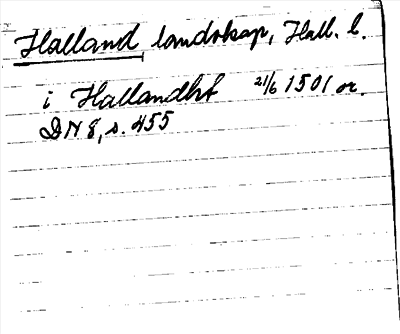 Halland landskap, Hall. l.
i Hallandht 21/6 1501 or.
DN 8, s. 455